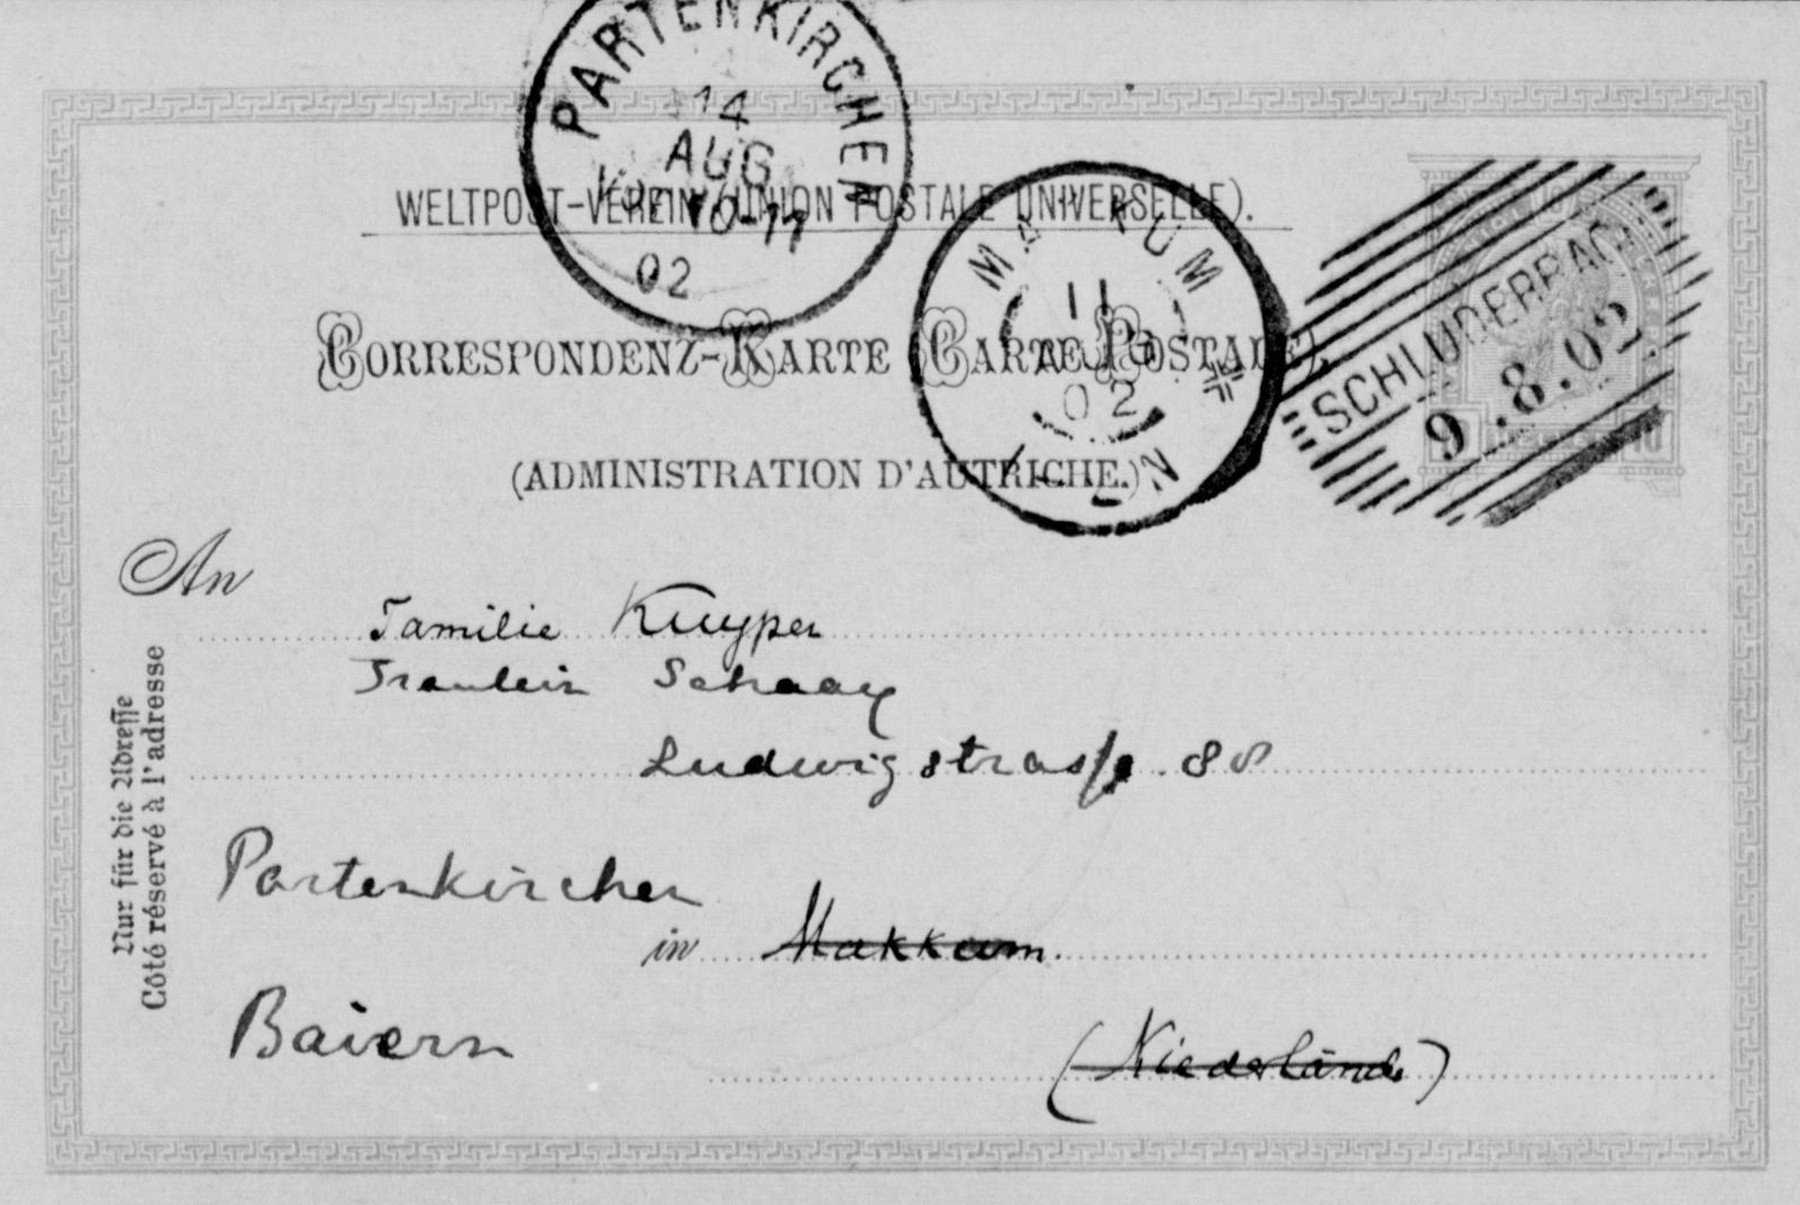 PARTENKIRCHEN
14
AUG
10-11
02
WELTPOST-VEREIN (UNION POSTALE UNIVERSELLE).
MAKKUM
11
AUG
02
SCHLUDERBACH
9.8.02
10
CORRESPONDENZ-KARTE (CARTE POSTALE).
(ADMINISTRATION D'AUTRICHE.)
An
Familie Kuyper
Fraulein Schaay
Ludwigstrasse 88
Nur für die Adresse
Côté réservé à l'adresse
Partenkirchen
in Makkum
Baiern
(Niederlande)